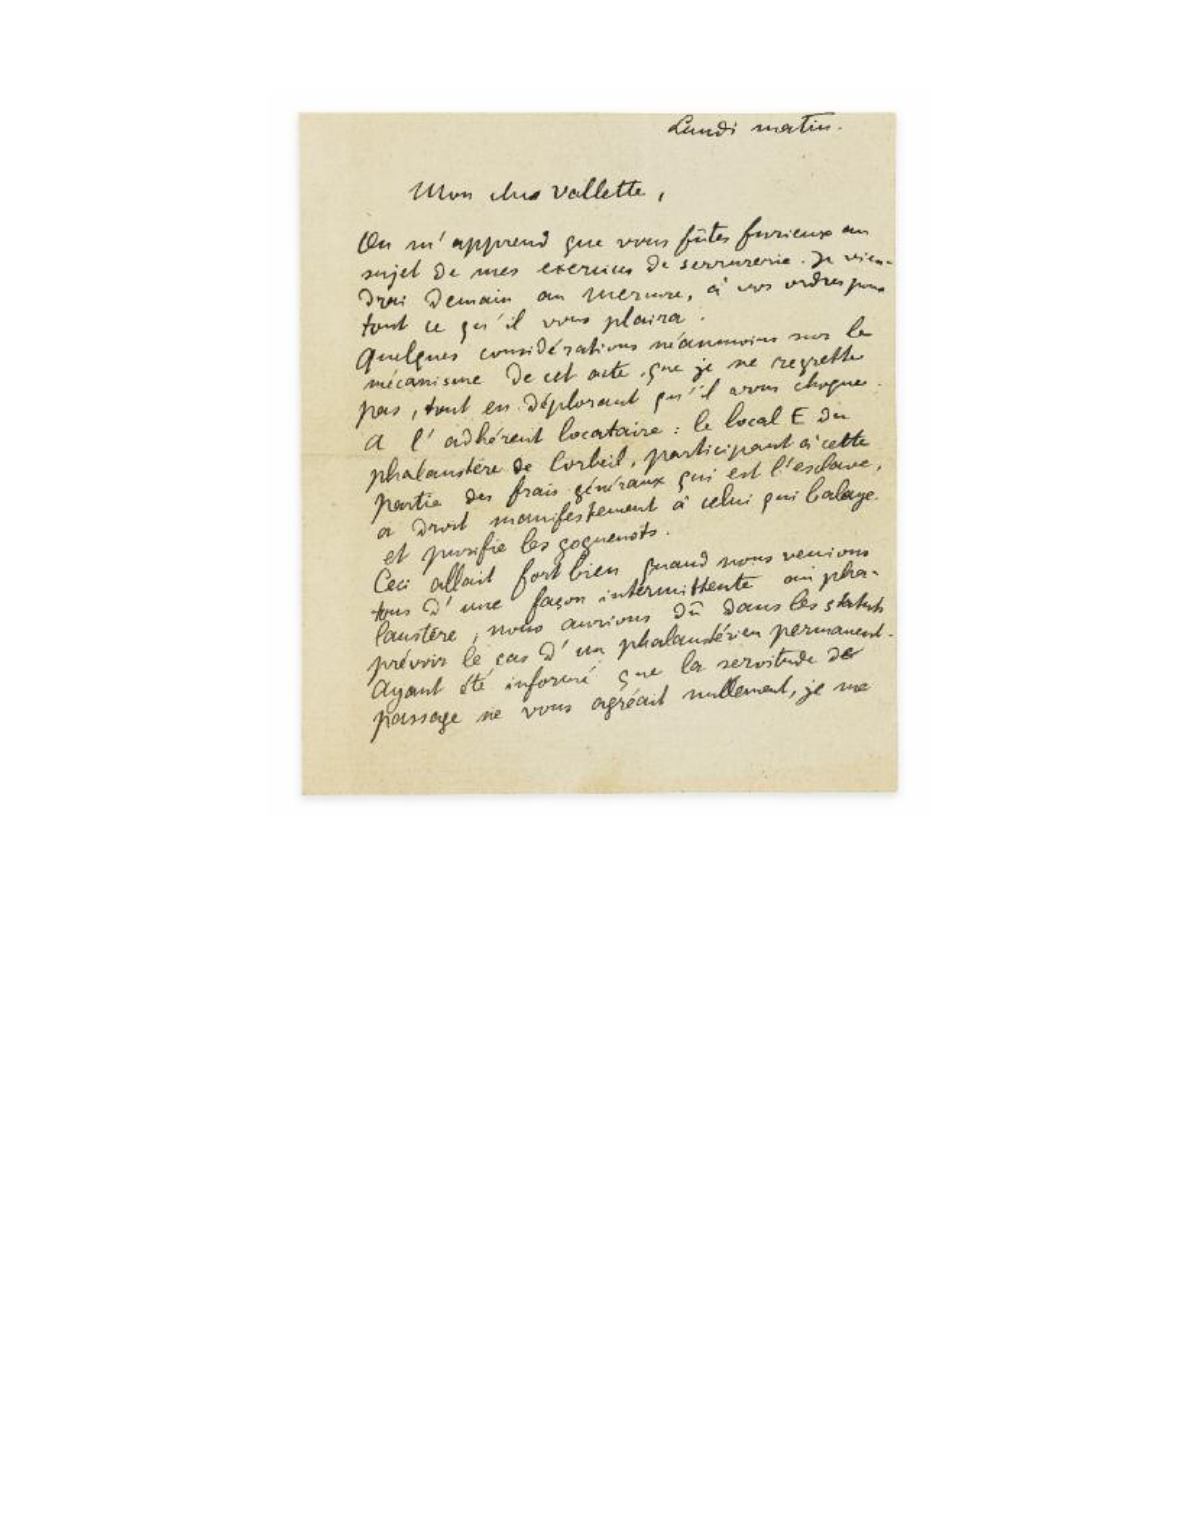 Lundi matin.
Mon cher Vallette,
On m'apprend que vous fûtes furieux au
sujet de mes exercices de serrurerie. Je vien-
drai demain au Mercure, à vos ordres pour
tout ce qu'il vous plaira.
Quelques considérations néanmoins sur le
mécanisme de cet acte, que je ne regrette
pas, tout en déplorant qu'il vous choque.
A l'adhérent locataire : le local E du
phalanstère de Corbeil, participant à cette
partie des frais généraux qui est l'esclave,
a droit manifestement à celui qui balaye
et purifie les goguenots.
Ceci allait fort bien quand nous venions
tous d'une façon intermittente au pha-
lanstère, nous aurions dû dans les statuts
prévoir le cas d'un phalanstérien permanent.
Ayant été informé que la servitude de
passage ne vous agréait nullement, je me